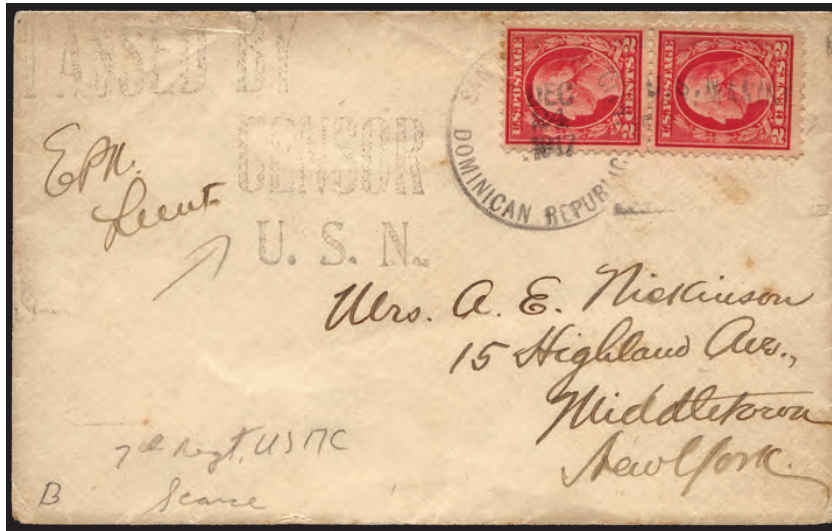 PASSED BY
CENSOR
U. S. N.
EPN.
Lieut
U.S. POSTAGE
2 CENTS 2
U.S. POSTAGE
2 CENTS 2
SAN
DEC
24
1917
DOMINICAN REPUBLIC
Mrs. A. E. Nickinson
15 Highland Ave.,
Middletown
New York.
Regt, USMC
Scarce
B